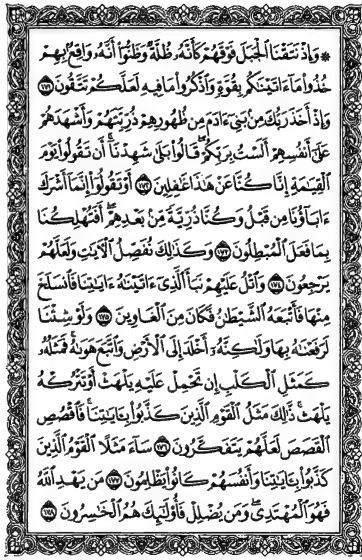 ۞ وَإِذْ نَتَقْنَا الْجَبَلَ فَوْقَهُمْ كَأَنَّهُ ظُلَّةٌ وَظَنُّوا أَنَّهُ وَاقِعٌ بِهِمْ
خُذُوا مَا آتَيْنَاكُم بِقُوَّةٍ وَاذْكُرُوا مَا فِيهِ لَعَلَّكُمْ تَتَّقُونَ ١٧١
وَإِذْ أَخَذَ رَبُّكَ مِن بَنِي آدَمَ مِن ظُهُورِهِمْ ذُرِّيَّتَهُمْ وَأَشْهَدَهُمْ
عَلَىٰ أَنفُسِهِمْ أَلَسْتُ بِرَبِّكُمْ ۖ قَالُوا بَلَىٰ شَهِدْنَا ۛ أَن تَقُولُوا يَوْمَ
الْقِيَامَةِ إِنَّا كُنَّا عَنْ هَٰذَا غَافِلِينَ ١٧٢ أَوْ تَقُولُوا إِنَّمَا أَشْرَكَ
آبَاؤُنَا مِن قَبْلُ وَكُنَّا ذُرِّيَّةً مِّن بَعْدِهِمْ ۖ أَفَتُهْلِكُنَا
بِمَا فَعَلَ الْمُبْطِلُونَ ١٧٣ وَكَذَٰلِكَ نُفَصِّلُ الْآيَاتِ وَلَعَلَّهُمْ
يَرْجِعُونَ ١٧٤ وَاتْلُ عَلَيْهِمْ نَبَأَ الَّذِي آتَيْنَاهُ آيَاتِنَا فَانسَلَخَ
مِنْهَا فَأَتْبَعَهُ الشَّيْطَانُ فَكَانَ مِنَ الْغَاوِينَ ١٧٥ وَلَوْ شِئْنَا
لَرَفَعْنَاهُ بِهَا وَلَٰكِنَّهُ أَخْلَدَ إِلَى الْأَرْضِ وَاتَّبَعَ هَوَاهُ ۚ فَمَثَلُهُ
كَمَثَلِ الْكَلْبِ إِن تَحْمِلْ عَلَيْهِ يَلْهَثْ أَوْ تَتْرُكْهُ
يَلْهَث ۚ ذَّٰلِكَ مَثَلُ الْقَوْمِ الَّذِينَ كَذَّبُوا بِآيَاتِنَا ۚ فَاقْصُصِ
الْقَصَصَ لَعَلَّهُمْ يَتَفَكَّرُونَ ١٧٦ سَاءَ مَثَلًا الْقَوْمُ الَّذِينَ
كَذَّبُوا بِآيَاتِنَا وَأَنفُسَهُمْ كَانُوا يَظْلِمُونَ ١٧٧ مَن يَهْدِ اللَّهُ
فَهُوَ الْمُهْتَدِي ۖ وَمَن يُضْلِلْ فَأُولَٰئِكَ هُمُ الْخَاسِرُونَ ١٧٨